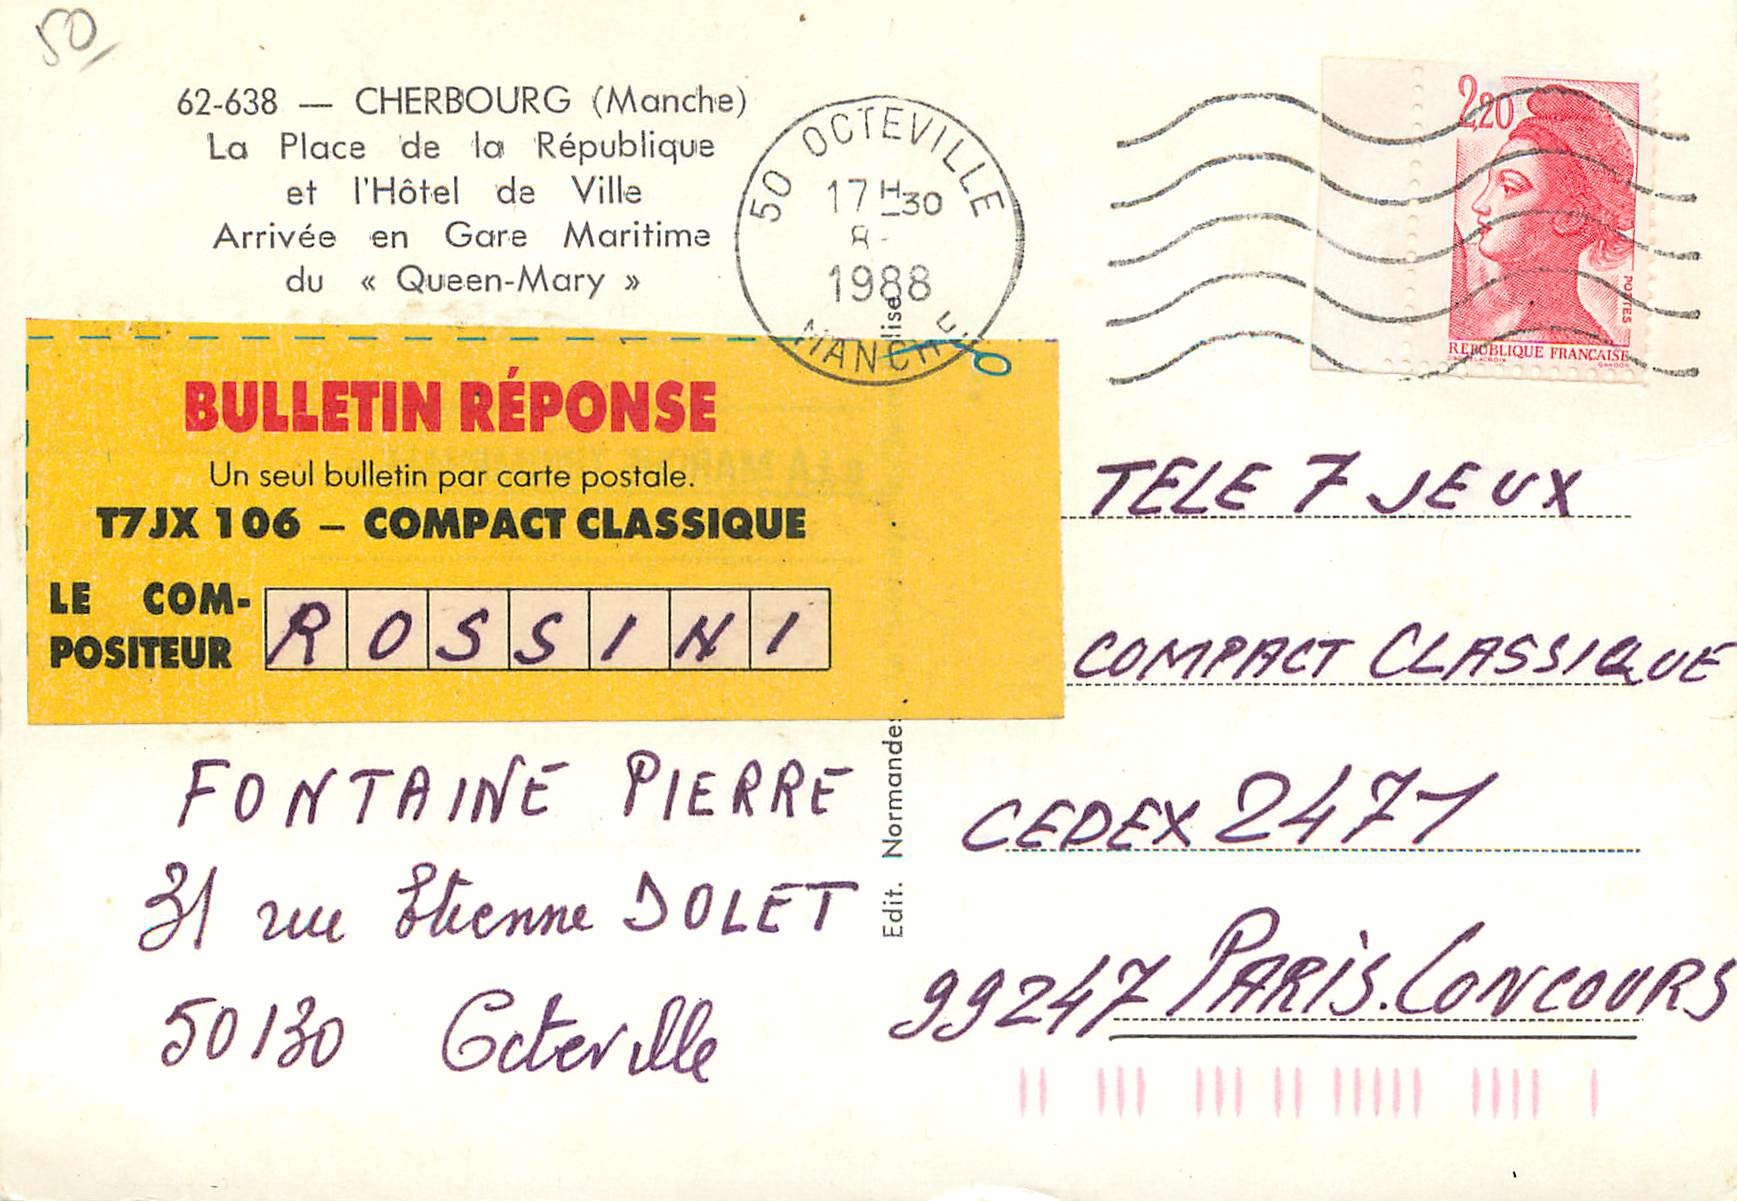 50
62-638 — CHERBOURG (Manche)
La Place de la République
et l'Hôtel de Ville
Arrivée en Gare Maritime
du « Queen-Mary »
50 OCTEVILLE
17 H 30
8-
1988
MANCHE
2,20
POSTES
REPUBLIQUE FRANCAISE
GANDON
BULLETIN RÉPONSE
Un seul bulletin par carte postale.
T7JX 106 – COMPACT CLASSIQUE
LE COM-
POSITEUR
ROSSINI
FONTAINE PIERRE
31 rue Etienne DOLET
50130 Octeville
Edit. Normandes
lise
TELE 7 JEUX
COMPACT CLASSIQUE
CEDEX 2471
99247 PARIS.CONCOURS